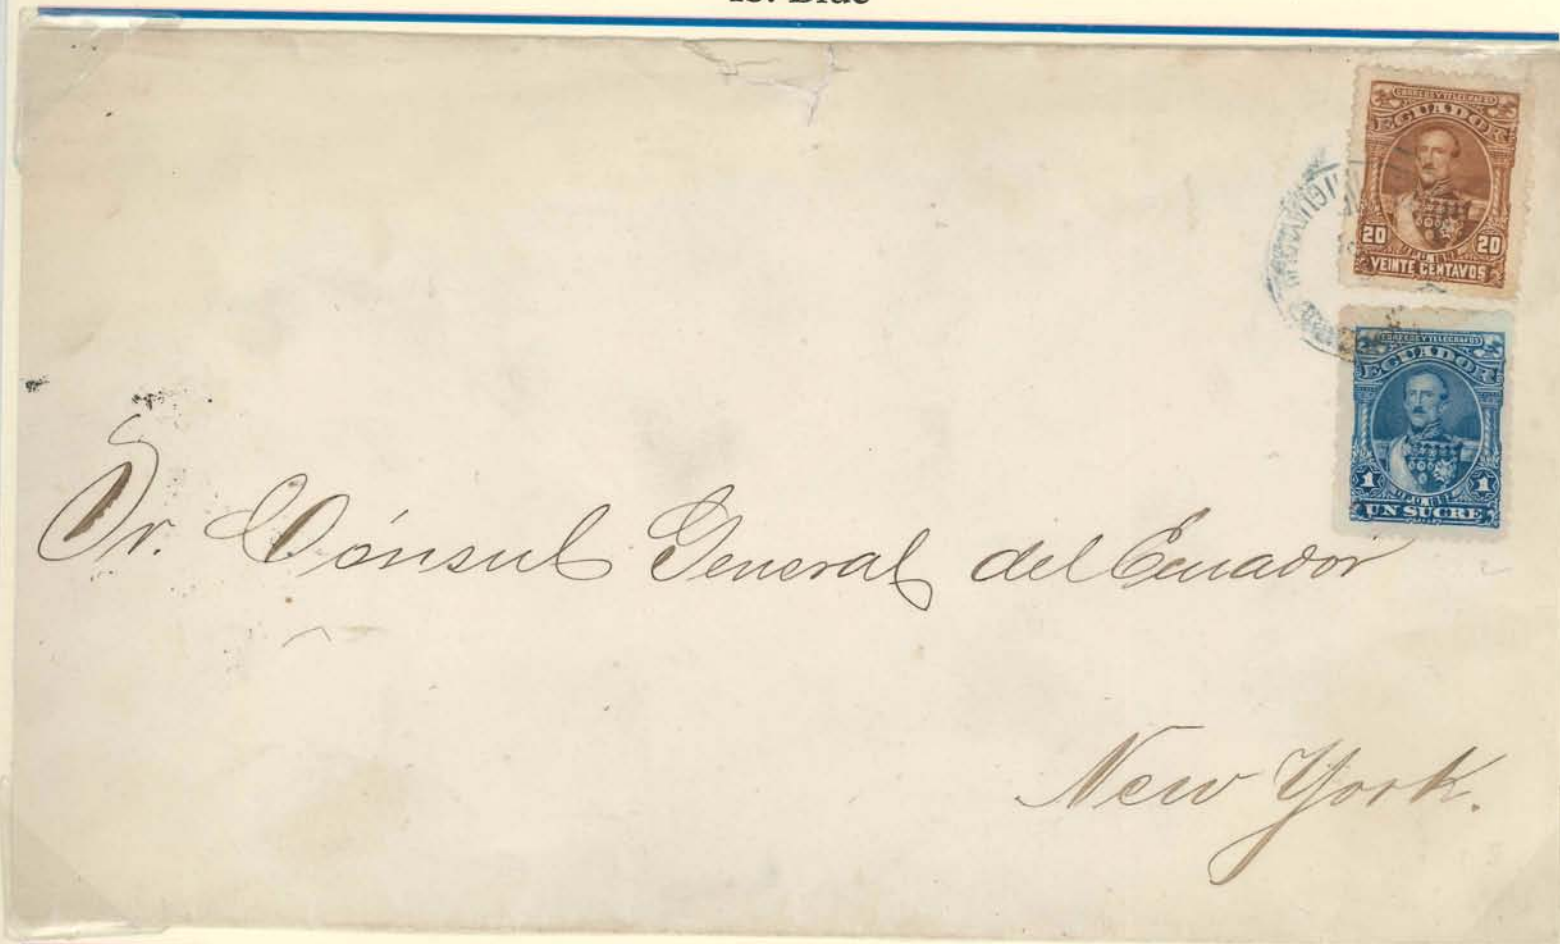 1s. Blue
CORREOS Y TELEGRAFOS
ECUADOR
20 20
VEINTE CENTAVOS
CORREOS Y TELEGRAFOS
ECUADOR
1 1
UN SUCRE
Sr. Cónsul General del Ecuador
New York.